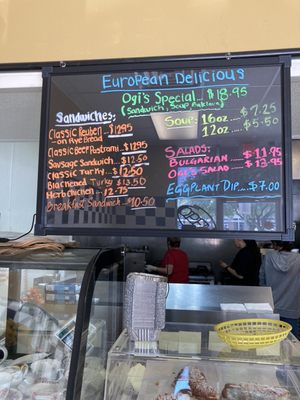 European Delicious
Ogi's Special $18.95
(Sandwich, Soup
Sandwiches:
Classic Reuben $12.95
- on Rye Bread
Classic Beef Pastrami $12.95
Sausage Sandwich... $12.50
Classic Turkey ... $12.50
Blackened Turkey $13.50
Herb Chicken - 12.75
Breakfast Sandwich 10.50
Soup: 16oz ... $7.25
12oz .... $5.50
Salads:
Bulgarian ... $11.95
Ogi's Salad $13.95
Eggplant Dip ... $7.00